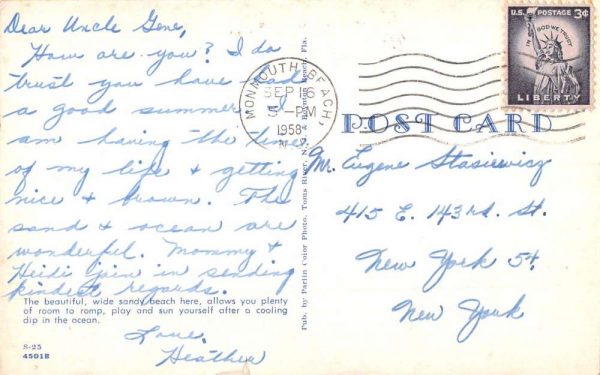 Dear Uncle Gene,
How are you? I do
trust you have had
a good summer. I
am having the time
of my life & getting
nice & brown. The
sand & ocean are
wonderful. Mommy &
Heidi join in sending
kindest regards.
Love,
Heather
The beautiful, wide sandy beach here, allows you plenty
of room to romp, play and sun yourself after a cooling
dip in the ocean.
S-25
4501B
Pub. by Parlin Color Photo. Toms River, N.
Beach, Fla.
MONMOUTH BEACH,
SEP 16
5-PM
1958
N.J.
U.S. POSTAGE 3¢
IN GOD WE TRUST
LIBERTY
POST CARD
Mr. Eugene Stasiewicz
415 E. 143rd. St.
New York 54,
New York